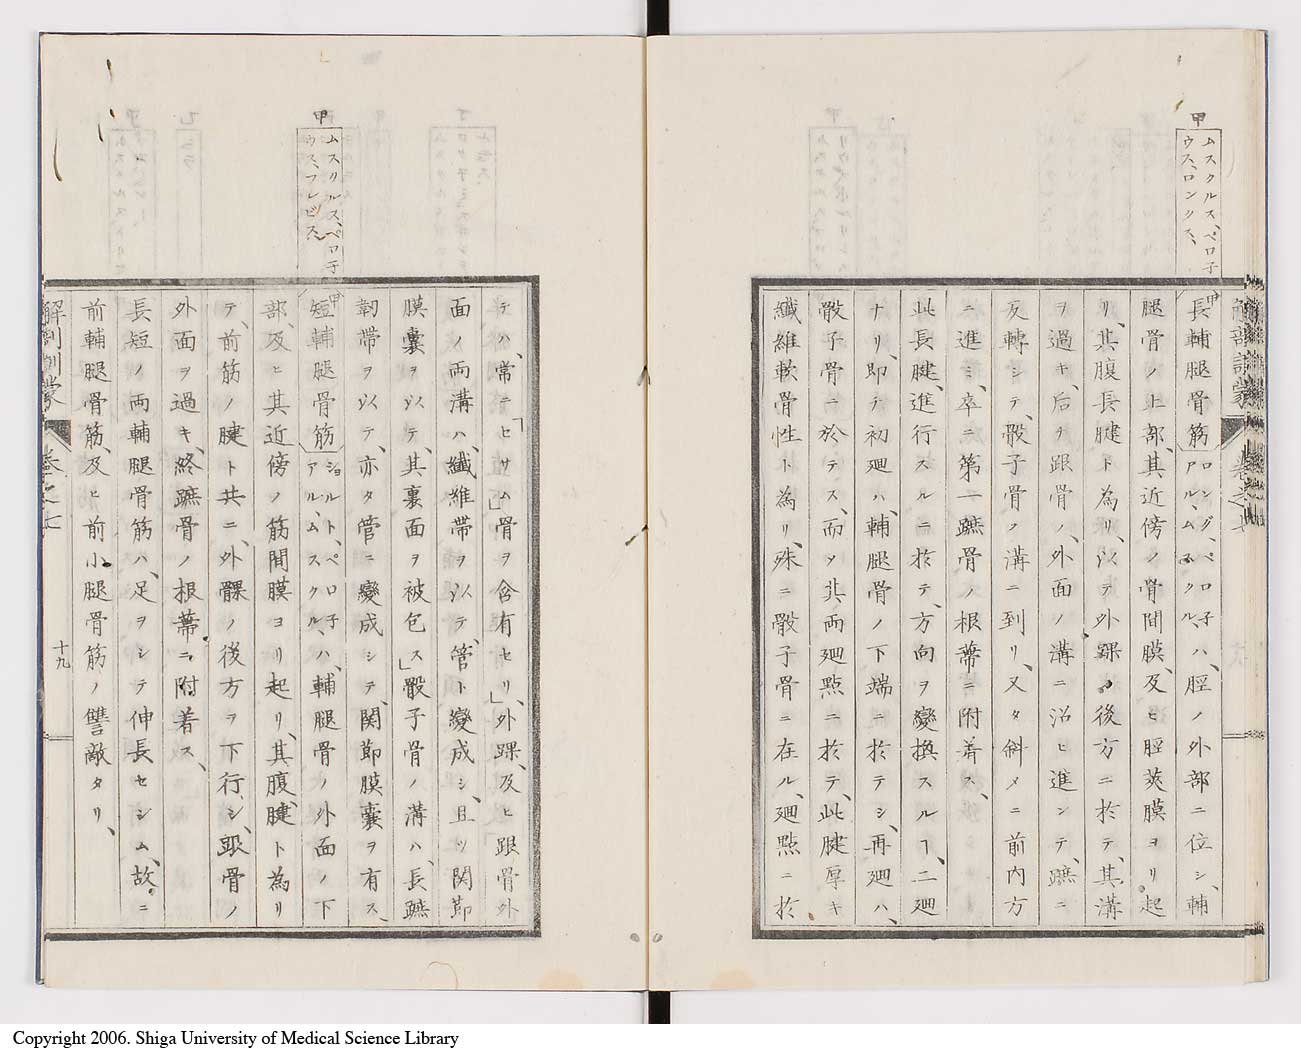 甲
ムスクルス、ペロ子
ウス、ロングス、
長輔腿骨筋 ロング、ペロ子、
アル、ムスクル、ハ、脛ノ外部ニ位シ、輔
腿骨ノ上部、其近傍ノ骨間膜、及ヒ脛莢膜ヨリ起
リ、其腹長腱ト為リ、以テ外踝ノ後方ニ於テ、其溝
ヲ過キ、后チ跟骨ノ、外面ノ溝ニ沿ヒ進ンテ、蹠ニ
反轉シテ、骰子骨ノ溝ニ到リ、又タ斜メニ前内方
ニ進ミ、卒ニ第一蹠骨ノ根蔕ニ附着ス、
此長腱、進行スルニ於テ、方向ヲ變換スルヿ、二廻
ナリ、即チ初廻ハ、輔腿骨ノ下端ニ於テシ、再廻ハ、
骰子骨ニ於テス、而〆其両廻點ニ於テ、此腱厚キ
纖維軟骨性ト為リ、殊ニ骰子骨ニ在ル、廻點ニ於
解剖訓蒙 巻之七
甲
ムスクルス、ペロ子
ウス、ブレビス、
テハ、常ニ「セサム」骨ヲ含有セリ」、外踝、及ヒ跟骨外
面ノ両溝ハ、纖維帯ヲ以テ、管ト變成シ、且ツ関節
膜囊ヲ以テ、其裏面ヲ被包ス」骰子骨ノ溝ハ、長蹠
靭帯ヲ以テ、亦タ管ニ變成シテ、関節膜囊ヲ有ス、
甲
短輔腿骨筋 ショルト、ペロ子
アル、ムスクル、ハ、輔腿骨ノ外面ノ下
部、及ヒ其近傍ノ筋間膜ヨリ起リ、其腹、腱ト為リ
テ、前筋ノ腱ト共ニ、外髁ノ後方ヲ下行シ、跟骨ノ
外面ヲ過キ、終蹠骨ノ根蔕ニ、附着ス、
長短ノ両輔腿骨筋ハ、足ヲシテ伸長セシム、故ニ
前輔腿骨筋、及ヒ前小腿骨筋ノ讐敵タリ、
解剖訓蒙 巻之七
十九
Copyright 2006. Shiga University of Medical Science Library